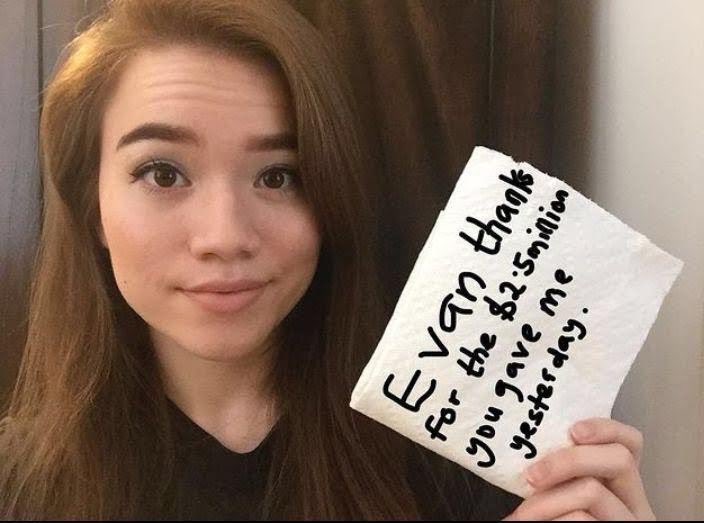 Evan thanks
for the $2.5million
you gave me
yesterday.